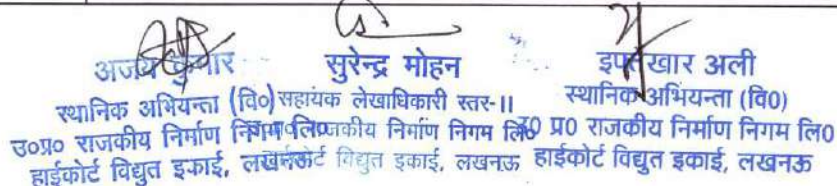 अजय कुमार
स्थानिक अभियन्ता (वि०)
उ०प्र० राजकीय निर्माण निगम लि०
हाईकोर्ट विद्युत इकाई, लखनऊ
सुरेन्द्र मोहन
सहायक लेखाधिकारी स्तर-II
राजकीय निर्माण निगम लि०
विद्युत इकाई, लखनऊ
इफ्तखार अली
स्थानिक अभियन्ता (वि0)
उ0 प्र0 राजकीय निर्माण निगम लि0
हाईकोर्ट विद्युत इकाई, लखनऊ